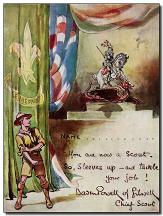 BE PREPARED
NAME
You are now a Scout –
So, Sleeves up – and tackle
your job!
Baden Powell of Gilwell
Chief Scout